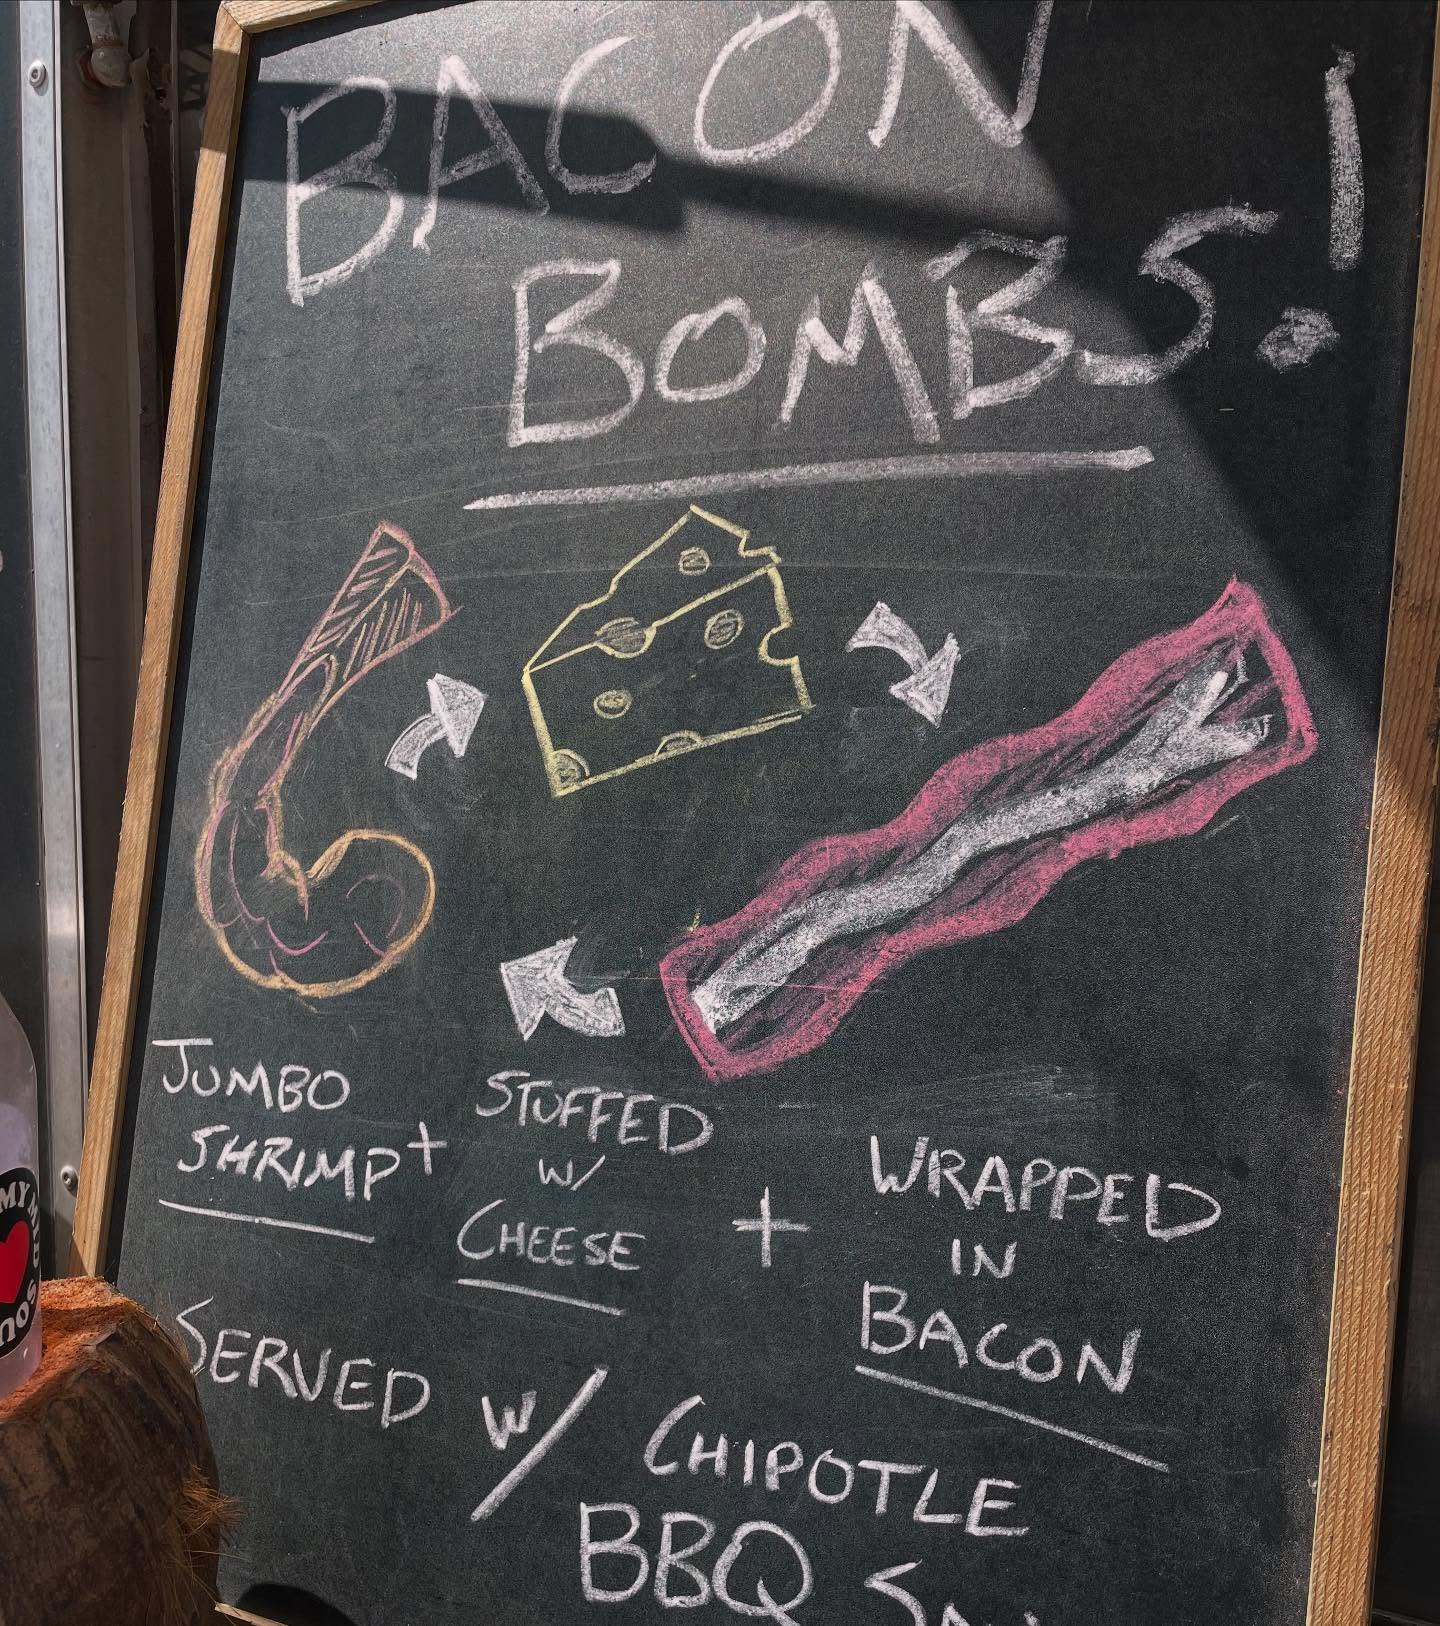 BACON
BOMBS!
JUMBO
SHRIMP +
STUFFED
w/
CHEESE
+
WRAPPED
IN
BACON
SERVED w/ CHIPOTLE
BBQ
MY
SOU